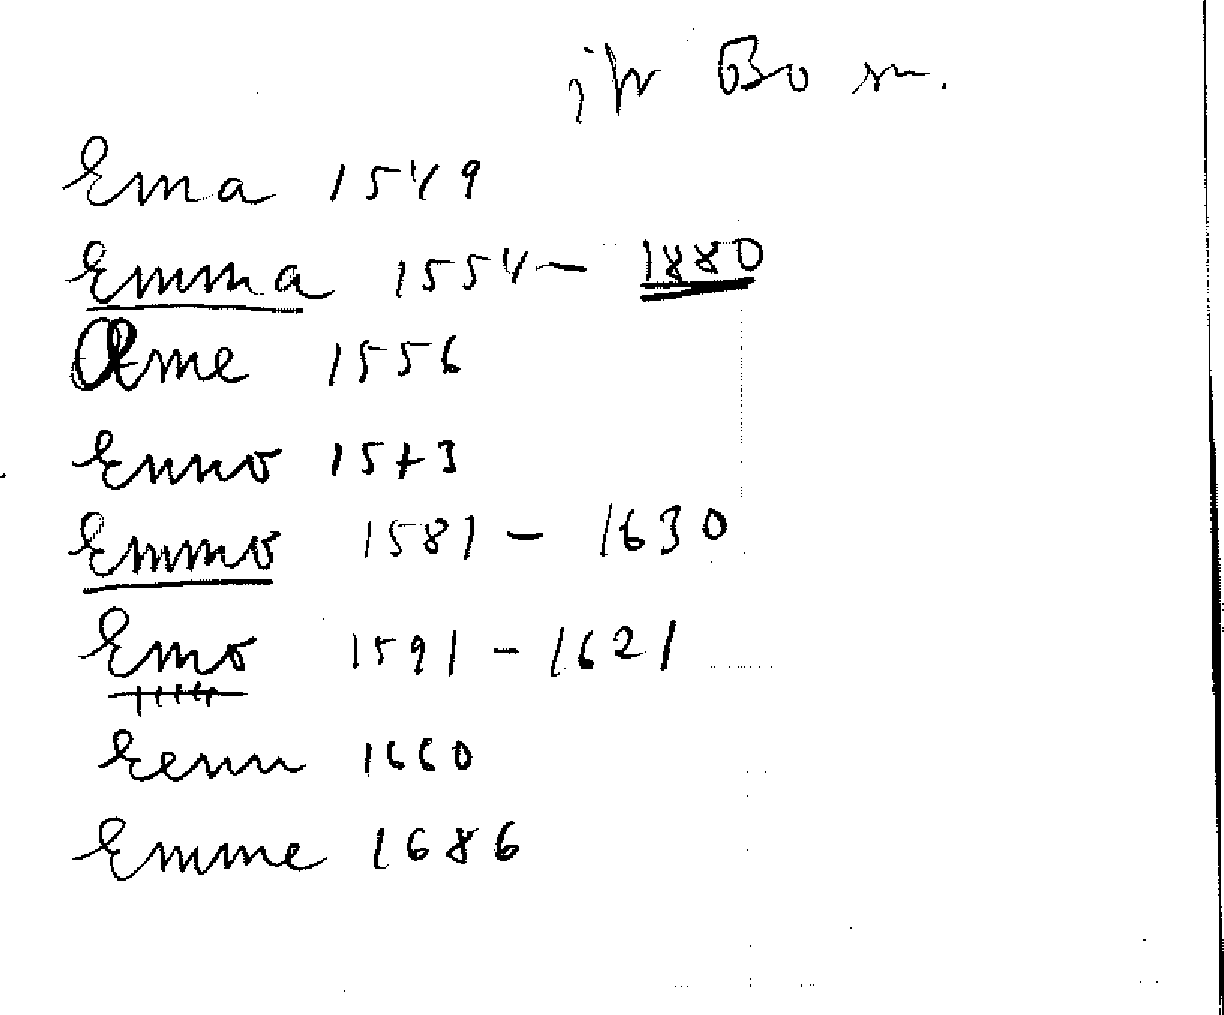 Ema 1549
Emma 1554 - 1880
Eme 1556
Enno 1573
Emmo 1581 - 1630
Emo 1591 - 1621
Eenn 1660
Emme 1686